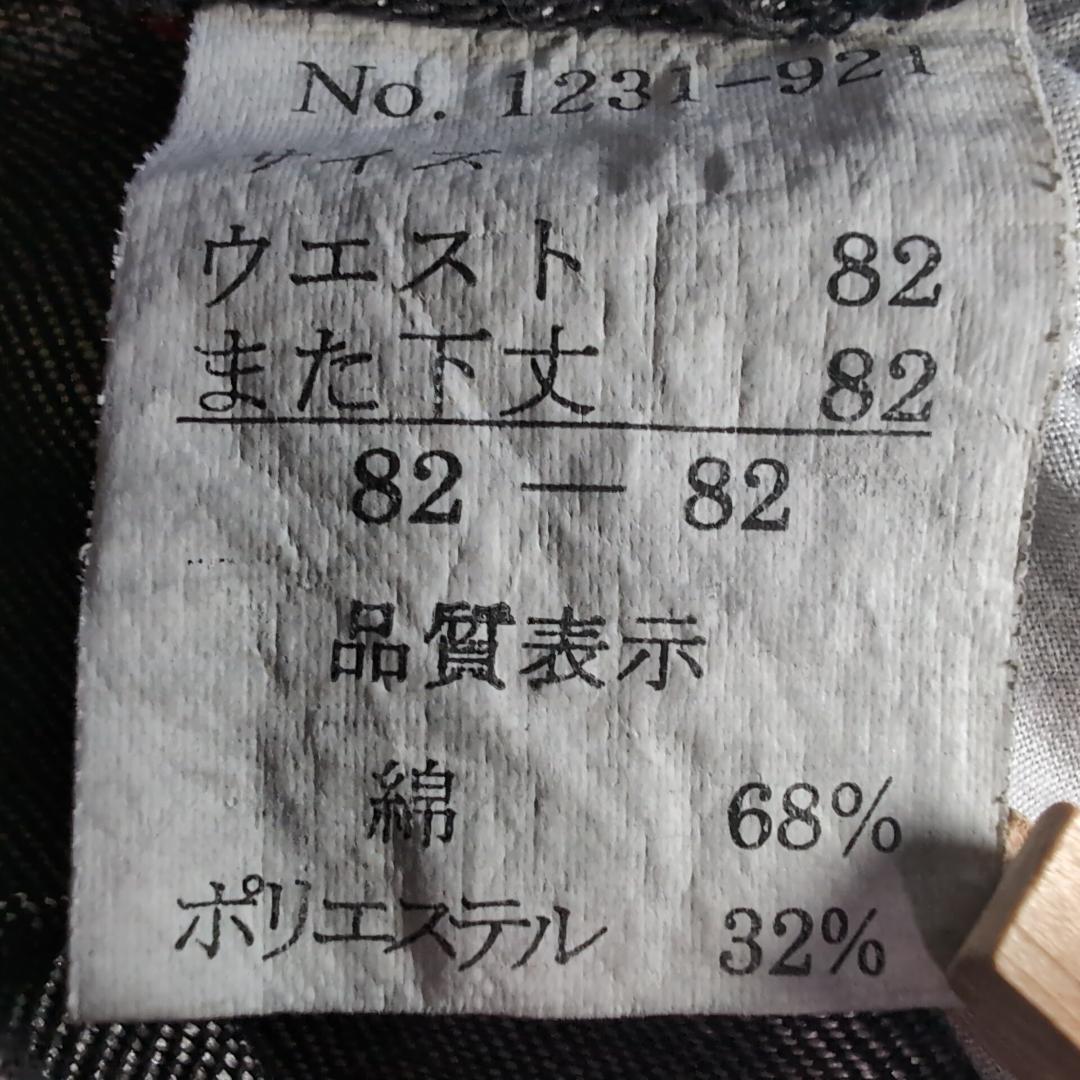 No. 1231-921
サイズ
ウエスト 82
また下丈 82
82 — 82
品質表示
綿 68%
ポリエステル 32%